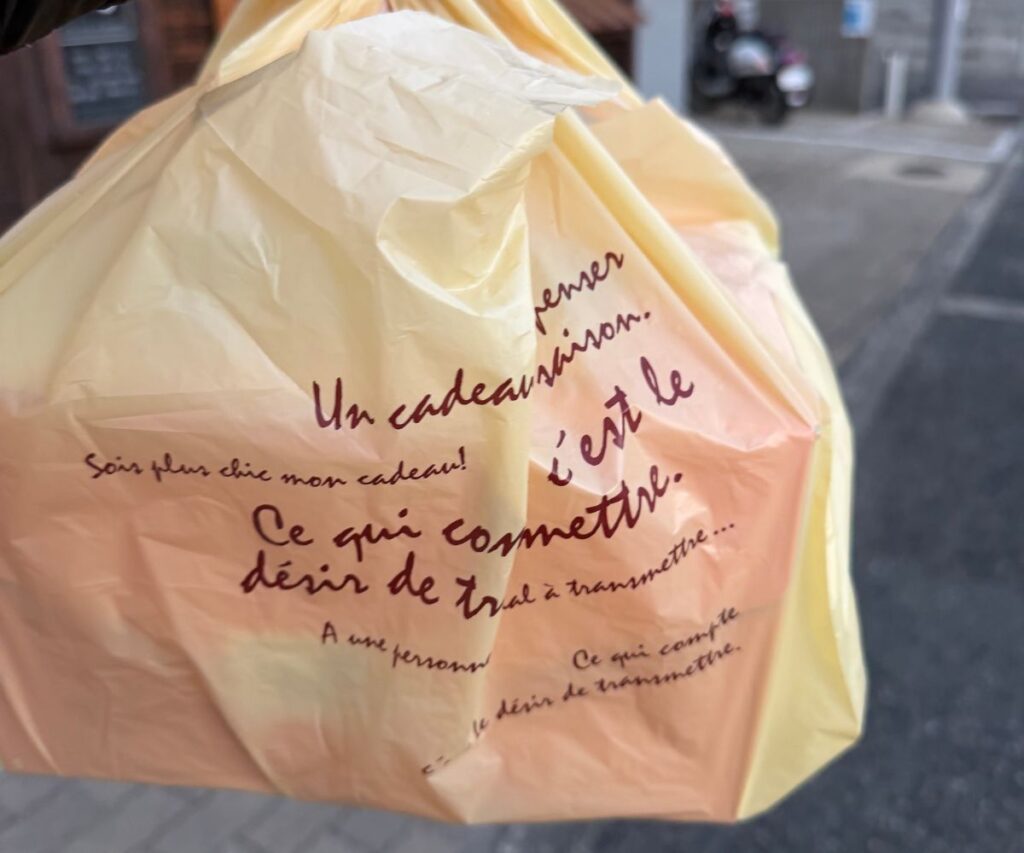 penser
Un cadeau saison.
Sois plus chic mon cadeau!
c'est le
Ce qui commettre.
désir de tr al à transmettre...
A une personn
Ce qui compte
le désir de transmettre.